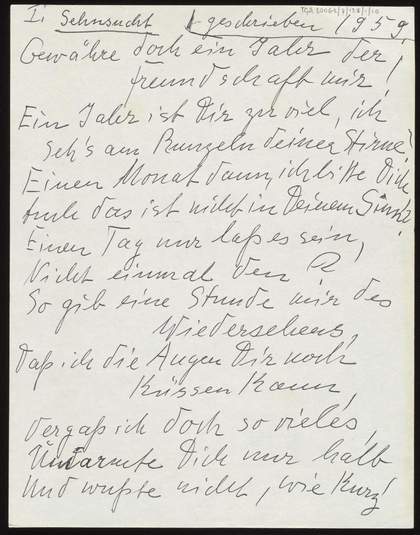 TGA 20062/3/138/1/10
I. Sehnsucht geschrieben 1959
Gewähre doch ein Jahr der
Freundschaft mir!
Ein Jahr ist Dir zu viel, ich
seh's am Runzeln deiner Stirne!
Einen Monat dann, ich bitte Dich
Auch das ist nicht in Deinem Sinn?
Einen Tag nur laß es sein,
Nicht einmal den?
So gib eine Stunde mir des
Wiedersehens,
Daß ich die Augen Dir noch
Küssen kann,
Vergaß ich doch so vieles,
Umarmte Dich nur halb
Und wußte nicht, wie kurz!